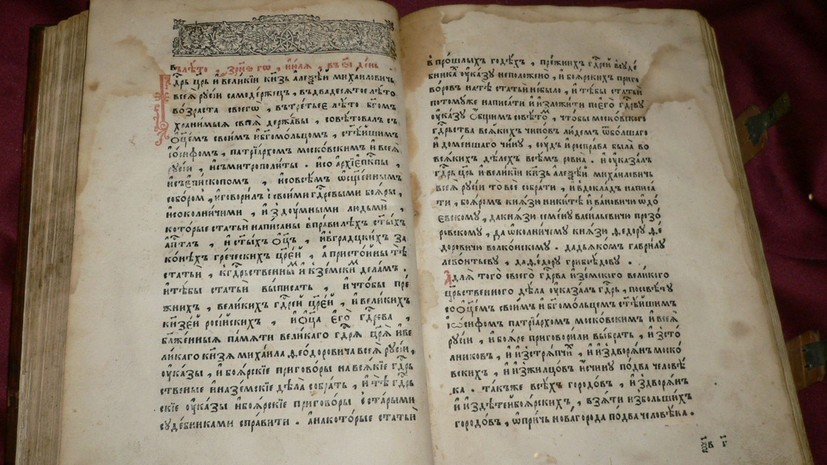 въ лѣто ҂зрнѕ го, і҆ꙋлѧ, въ ѕ҃і день
Гдⷭ҇рь цр҃ь и҆ вели́кїи кн҃зь а҆ле҆ѯѣ́й миха́иловичь,
всеѧ̀ рꙋсі́и самоде́ржецъ, въ двадесѧ́тое лѣ́то
во́зраста своегѡ̀, въ тре́тьее лѣ́то бг҃омъ
хранимыѧ своеѧ̀ держа́вы, совѣ́товалъ съ
ѻ҆ц҃е́мъ свои́мъ и҆ бг҃омо́льцомъ, ст҃ѣ́йшимъ
і҆ѡ́сифомъ, патрїа́рхомъ моско́вскимъ и҆ всеѧ̀
рꙋсі́и, и҆ съ митрополи́ты. и҆ со а҆рхїепⷭ҇кпы,
и҆ съ е҆пи́скопомъ, и҆ со всѣ́мъ ѡ҆сщ҃е́ннымъ
собо́ромъ, и҆ говори́лъ съ свои́ми гдⷭ҇ревыми боѧ́ры,
и҆ съ ѻ҆ко́лничими, и҆ з дꙋ́мными людьмѝ,
кото́рые статьѝ напи́саны въ пра́вилѣхъ ст҃ы́хъ
а҆пⷭ҇лъ, и҆ ст҃ы́хъ ѻ҆ц҃ъ, и҆ въ гра́цкихъ за
ко́нѣхъ гре́ческихъ цр҃е́й, а҆ присто́йны тѣ̀
статьѝ, к гдⷭ҇рьственнымъ и҆ к зе́мскимъ дѣла́мъ,
и҆ тѣ́бы статьѝ вы́писать, и҆ что́бы пре́
жнихъ, вели́кихъ гдⷭ҇рей цр҃е́й, и҆ вели́кихъ
кн҃зе́й росі́йскихъ, и҆ ѻ҆ц҃а̀ е҆гѡ̀ гдⷭ҇рева,
бл҃же́нныѧ па́мѧти вели́каго гдⷭ҇рѧ цр҃ѧ̀ и҆ ве
ли́каго кн҃зѧ михаи́ла ѳео́доровича всеѧ̀ рꙋсі́и,
ꙋ҆ка́зы, и҆ боѧ́рские пригово́ры на всѧ́кїе гдⷭ҇рь
ственые и҆ на зе́мскїе дѣла̀ собра́ть, и҆ тѣ̀ гдⷭ҇рь
скїе ꙋ҆ка́зы и҆ боѧ́рскїе пригово́ры с ста́рыми
сꙋде́бниками спра́вити. а҆ на кото́рые статьѝ
в про́шлыхъ годѣ́хъ, пре́жнихъ гдⷭ҇рей в сꙋде́
бникахъ ꙋ҆ка́зꙋ не поло́жено, и҆ боѧ́рскихъ приго
во́ровъ на тѣ̀ статьѝ не́было, и҆ тѣ́бы статьѝ
потомꙋже написа́ти и҆ и҆зложи́ти по е҆гѡ̀ гдⷭ҇рвꙋ
ꙋ҆ка́зꙋ ѻ҆́бщимъ совѣ́томъ, что́бы моско́вскаго
гдⷭ҇рьства всѧ́кихъ чино́въ лю́демъ ѿ бо́лшаго
и҆ до ме́ншаго чи́нꙋ, сꙋ́дъ и҆ распра́ва была̀ во
всѧ́кихъ дѣ́лехъ всѣ́мъ ровна̀. и҆ ꙋ҆каза́лъ
гдⷭ҇рь цр҃ь и҆ вели́кїи кн҃зь а҆леѯѣ́й миха́иловичь
всеѧ̀ рꙋсі́и то всѐ собра́ти, и҆ в докла́дъ написа́
ти, боѧ́ромъ кн҃зю ники́тѣ и҆ва́новичю ѻ҆до́
евскомꙋ, да кн҃зю семе́нꙋ васи́льевичю прозо́
ро́вскомꙋ, да ѻ҆ко́лничемꙋ кн҃зю ѳе́дорꙋ ѳе́
доровичю волко́нскомꙋ. да дьѧ́комъ гаври́лꙋ
лео́нтьевꙋ, да ѳе́дорꙋ грибое́дову.
А для того̀ своегѡ̀ гдⷭ҇рва и҆ зе́мскаго вели́каго
цр҃ьственнаго дѣ́ла ꙋ҆каза́лъ гдⷭ҇рь, по совѣ́тꙋ со
ѻ҆ц҃е́мъ свои́мъ и҆ бг҃омо́льцомъ ст҃ѣ́йшимъ
і҆ѡ́сифомъ патрїа́рхомъ моско́вскимъ и҆ всеѧ̀
рꙋсі́и, и҆ боѧ́ре приговори́ли вы́брать, и҆з сто́
лниковъ, и҆ и҆з стрѧ́пчихъ, и҆ и҆з дворѧ́нъ моско́
вскихъ, и҆ и҆з жилцо́въ и҆ с чи́нꙋ по два человѣ́
ка. та́кже всѣ́хъ городо́въ, и҆з дворѧ́нъ
и҆ и҆з дѣте́й боѧ́рскихъ, взѧ́ти и҆з болши́хъ
городо́въ, ѻ҆про́чь нова́города по два человѣ́ка.